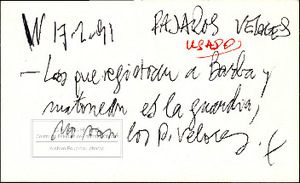 W 17-2-91 PAJAROS VELOCES
USADO
— Los que registran a Barba y
matonean es la guardia,
No son los P. Veloces.